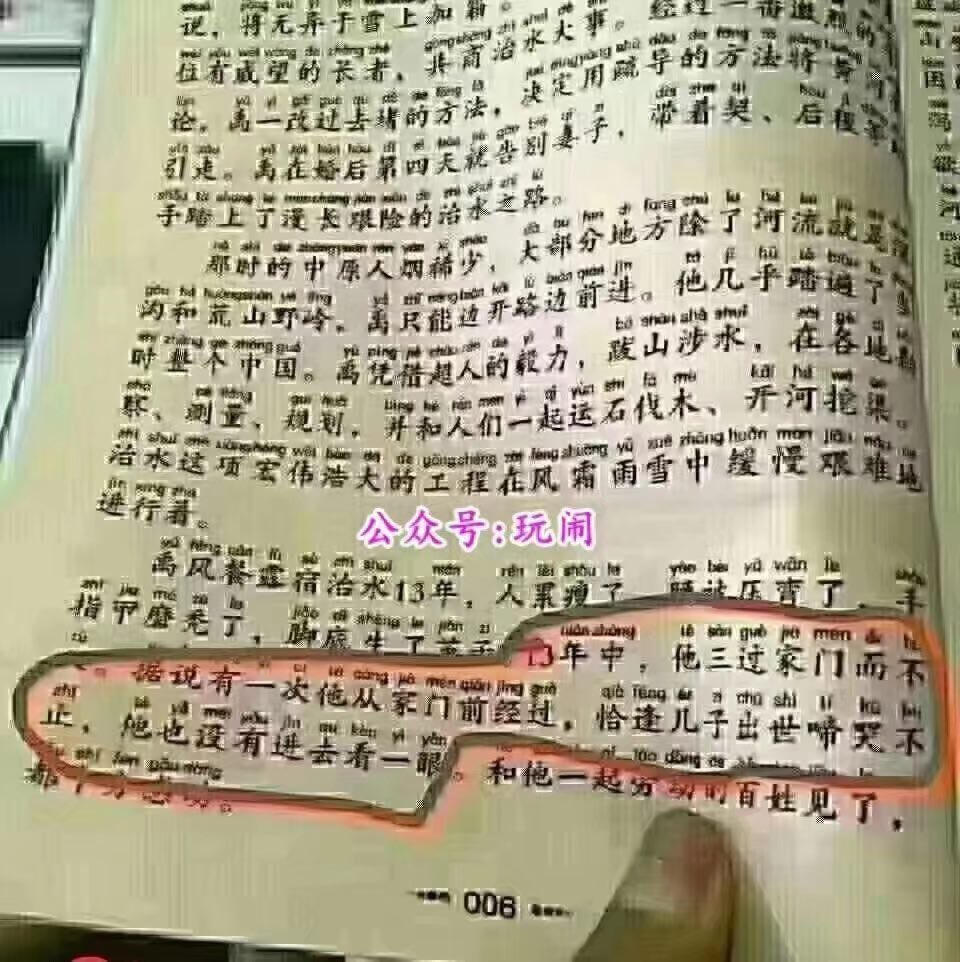 说,将无异于雪上加霜。经过一番激烈的
位有威望的长者,共商治水大事。
论,禹一改过去堵的方法,决定用疏导的方法将
引走。禹在婚后第四天就告别妻子,带着契、后稷等
手踏上了漫长艰险的治水之路。
那时的中原人烟稀少,大部分地方除了河流就是
沟和荒山野岭,禹只能边开路边前进。他几乎踏遍了当
时整个中国。禹凭借超人的毅力,跋山涉水,在各地勘
察、测量、规划,并和人们一起运石伐木、开河挖渠。
治水这项宏伟浩大的工程在风霜雨雪中缓慢艰难地
进行着。
公众号:玩闹
禹风餐露宿治水13年,人累瘦了,腰被压弯了,手
指甲磨秃了,脚底生了
13年中,他三过家门而不
据说有一次他从家门前经过,恰逢儿子出世啼哭不
止,他也没有进去看一眼。和他一起劳动的百姓见了,
都十分感动。
006